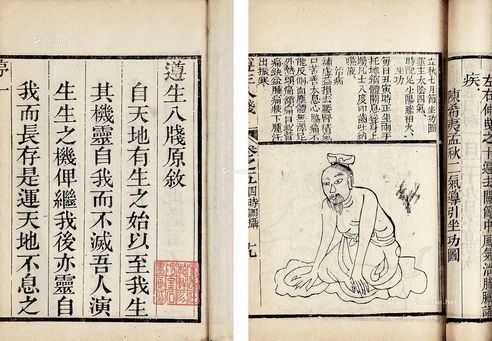 遵生八牋原敘
自天地有生之始以至我生
其機靈自我而不滅吾人演
生生之機俾繼我後亦靈自
我而長存是運天地不息之
疾
陳希夷孟秋二氣導引坐功圖
立秋七月節坐功圖
運主太陰四氣
時配足少陽膽相火
坐功
每日丑寅時正坐兩手
托地縮體閉息聳身上
踴凡七八度叩齒吐納
嚥液
治病
補虛益損去腰腎積氣
口苦善太息心脇痛不
能反側面塵體無澤足
外熱頭痛頷痛目銳眥
痛缺盆腫痛腋下腫汗
出振寒
四時調攝